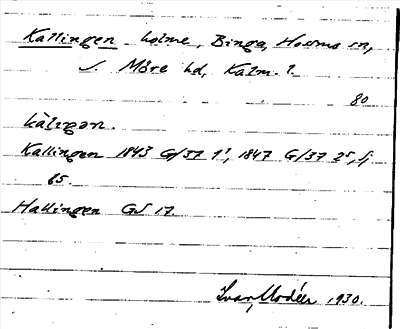 Kallingen holme, Binga, Hossmo sn,
S. Möre hd, Kalm. l.
80
kàlıŋən.
Kallingen 1843 G/37 1¹, 1847 G/37 2⁵, fj
65.
Hallingen GS 17.
Ivar Modéer 1930.